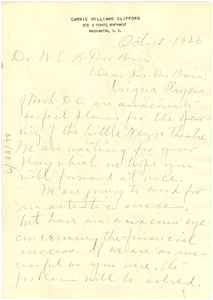 CARRIE WILLIAMS CLIFFORD
NORTHWEST
WASHINGTON, D. C.
Oct. 12-1926
Dr. W. E. B. Du Bois.
Dear Dr. Du Bois:
Krigwa Players
of Wash. D.C. are anxious to
perfect plans for the open-
ing of the Little Negro Theatre
We are waiting for your
play which we hope you
will forward at once.
We are going to work for
an artistic success,
but have an anxious eye
concerning the financial
success. If we are as suc-
cessful as you were, the
problem will be solved.